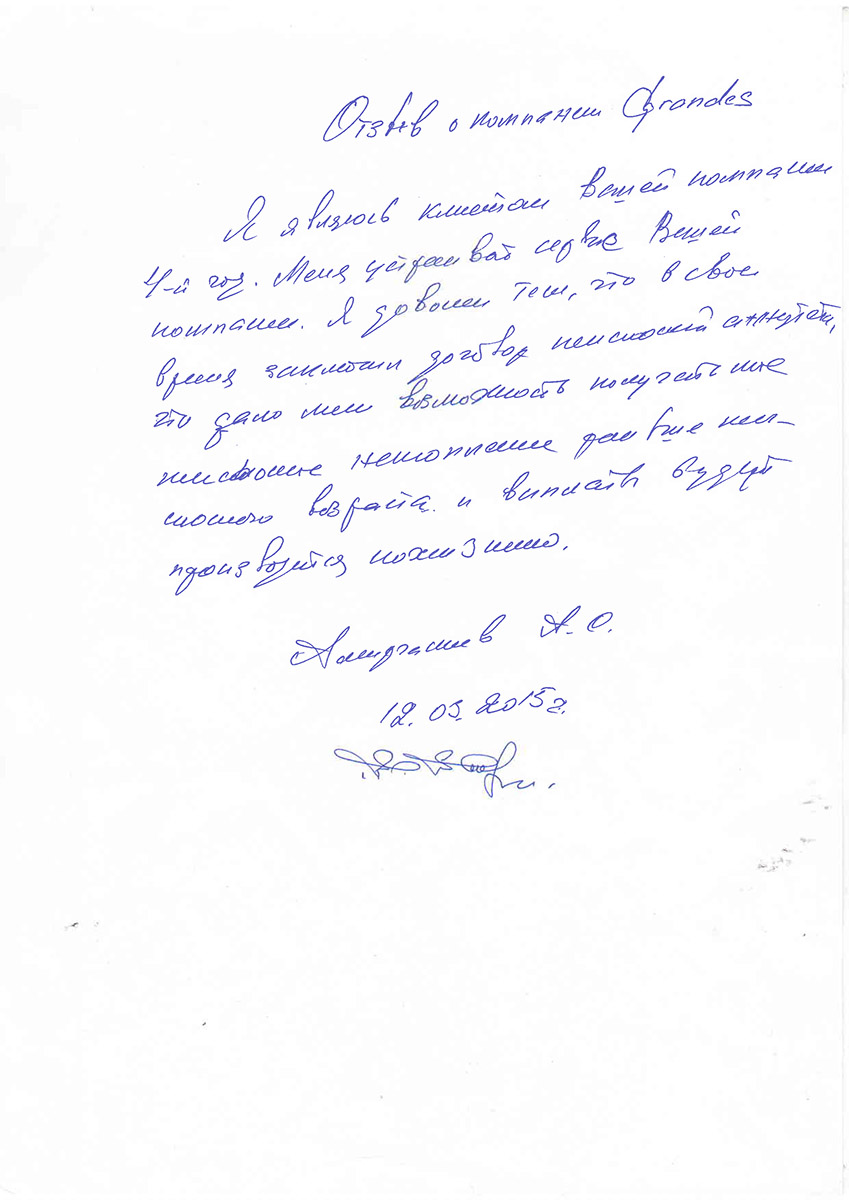 Отзыв о компании Grandes
Я являюсь клиентом Вашей компании
4-й год. Меня устраивает сервис Вашей
компании. Я доволен тем, что в свое
время заключил договор пенсионный аннуитет,
что дало мне возможность получать мне
пенсионные раньше пен-
сионного возраста и выплаты будут
производится пожизненно.
А. О.
12.03.2015г.